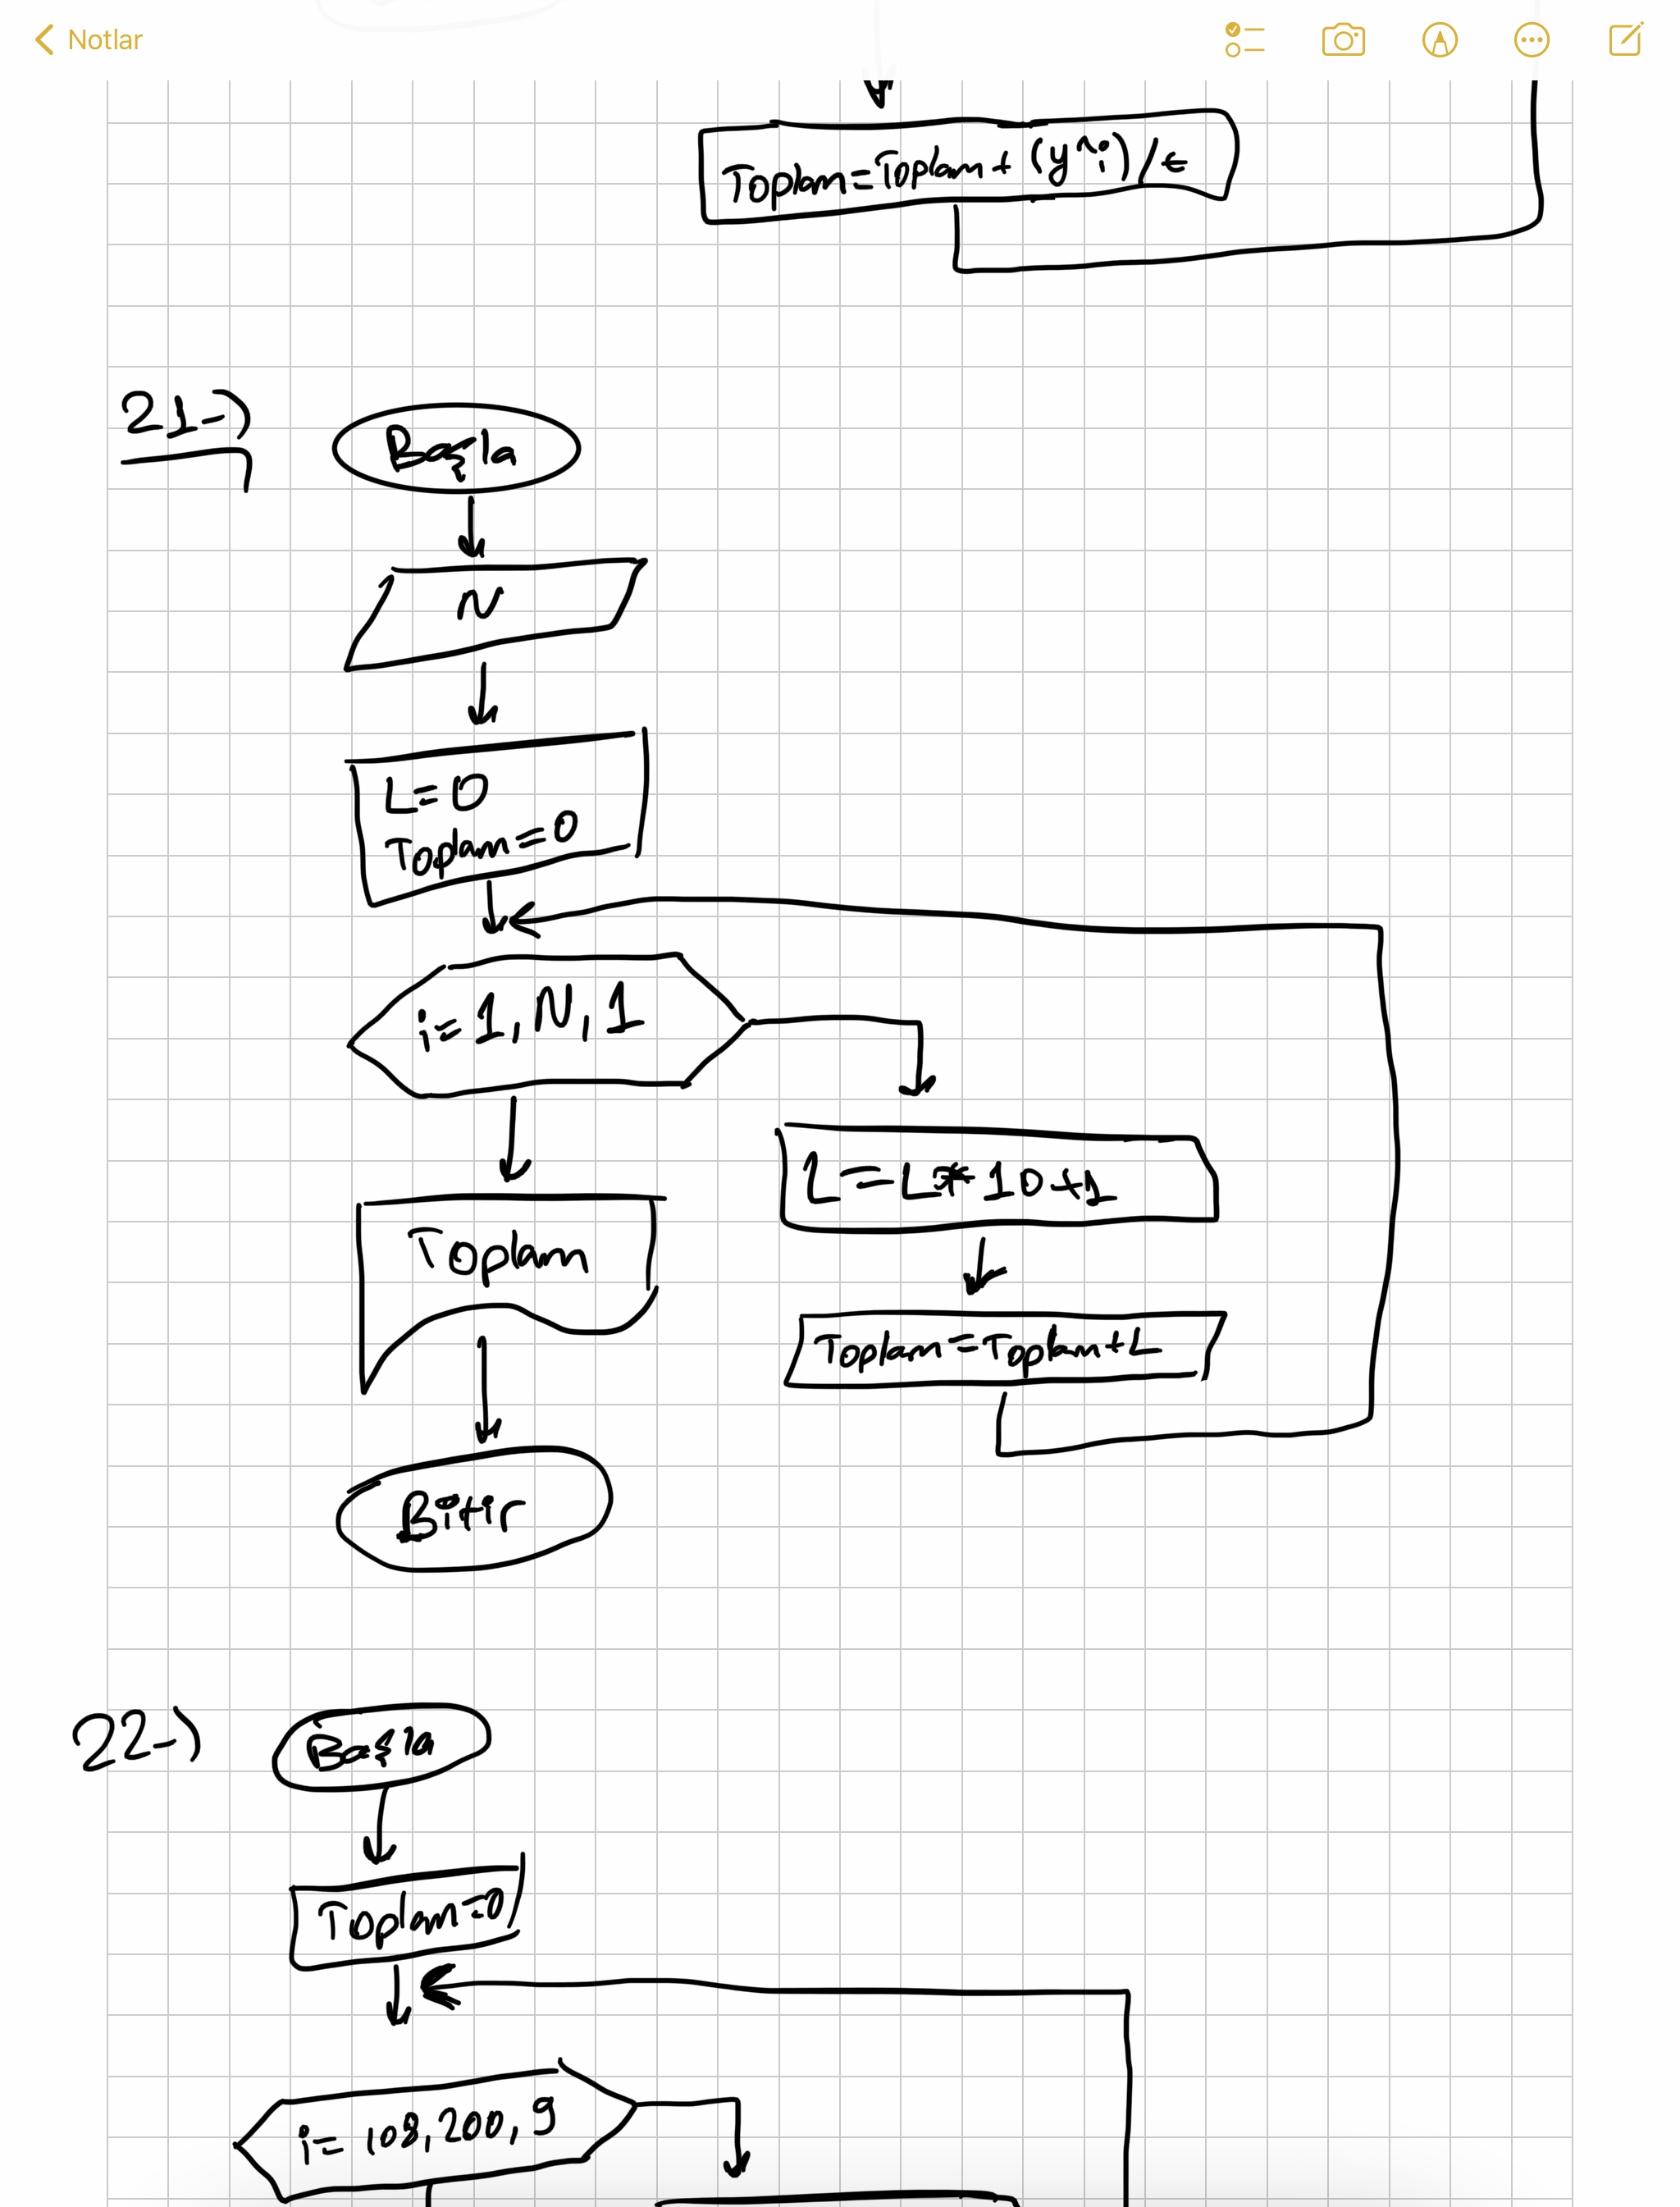 Notlar
Toplam=Toplam+(y^i)/t
21-)
Başla
N
L=0
Toplam=0
i=1,N,1
L=L*10+1
Toplam
Toplam=Toplam+L
Bitir
22-)
Başla
Toplam=0
i=108,200,9